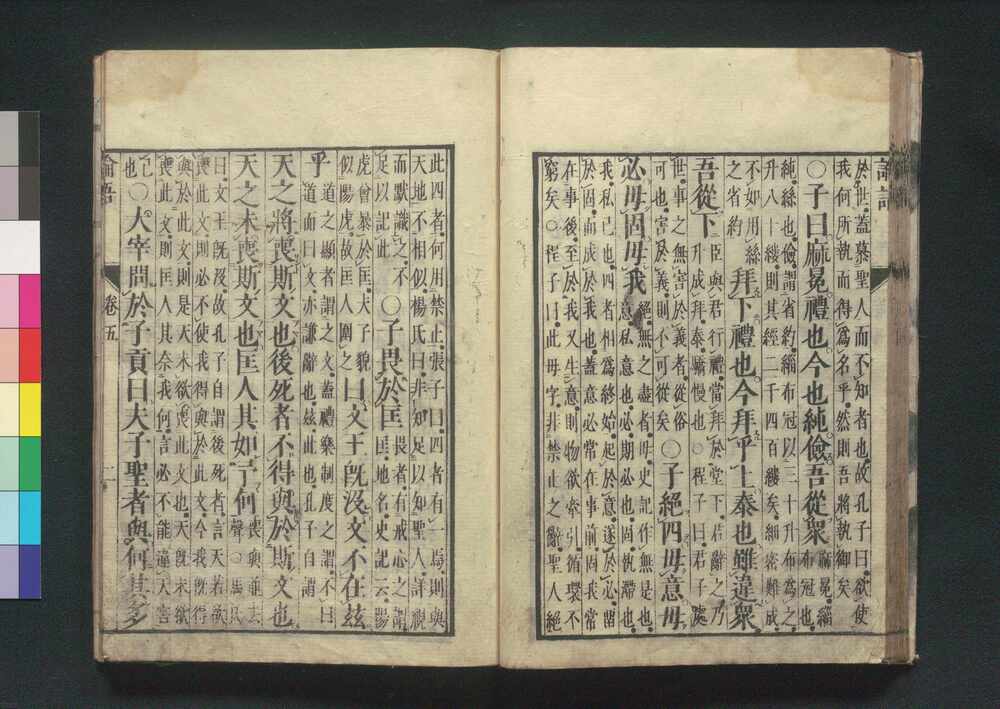 論語
於世蓋慕聖人而不知者也故孔子曰欲使
我何所執而得爲名乎然則吾將執御矣
○子曰麻冕禮也今也純儉吾從衆
麻冕緇
布冠也
純絲也儉謂省約緇布冠以三十升布爲之
升八十縷則其經二千四百縷矣細密難成
不如用絲
之省約
拜下禮也今拜乎上泰也雖違衆
吾從下
臣與君行禮當拜於堂下君辭之乃
升成拜泰驕慢也○程子曰君子處
世事之無害於義者從俗
可也害於義則不可從矣
○子絕四毋意毋
必毋固毋我
絕無之盡者毋史記作無是也
意私意也必期必也固執滯也
我私己也四者相爲終始起於意遂於必留
於固而成於我也蓋意必常在事前固我常
在事後至於我又生意則物欲牽引循環不
窮矣○程子曰此毋字非禁止之辭聖人絕
此四者何用禁止張子曰四者有一焉則與
天地不相似楊氏曰非知足以知聖人詳視
而默識之不
足以記此
○子畏於匡
畏者有戒心之謂
匡地名史記云陽
虎曾暴於匡夫子貌
似陽虎故匡人圍之
曰文王旣沒文不在茲
乎
道之顯者謂之文蓋禮樂制度之謂不曰
道而曰文亦謙辭也茲此也孔子自謂
天之將喪斯文也後死者不得與於斯文也
天之未喪斯文也匡人其如予何
喪與並去
聲○馬氏
曰文王旣沒故孔子自謂後死者言天若欲
喪此文則必不使我得與於此文今我旣得
與於此文則是天未欲喪此文也天旣未欲
喪此文則匡人其奈我何言必不能違天害
己
也
○大宰問於子貢曰夫子聖者與何其多
論語 卷五 二